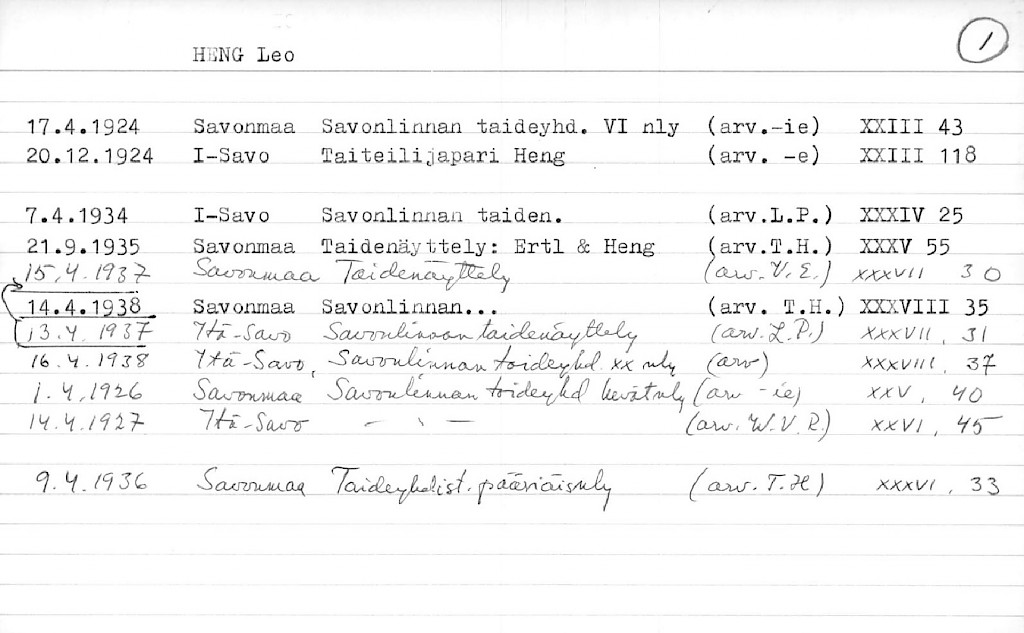 1
HENG Leo
17.4.1924 Savonmaa Savonlinnan taideyhd. VI nly (arv.-ie) XXIII 43
20.12.1924 I-Savo Taiteilijapari Heng (arv. -e) XXIII 118
7.4.1934 I-Savo Savonlinnan taiden. (arv.L.P.) XXXIV 25
21.9.1935 Savonmaa Taidenäyttely: Ertl & Heng (arv.T.H.) XXXV 55
15.4.1937 Savonmaa Taidenäyttely (arv. V.E.) XXXVII 30
14.4.1938 Savonmaa Savonlinnan... (arv. T.H.) XXXVIII 35
13.4.1937 Itä-Savo Savonlinnan taidenäyttely (arv. L.P.) XXXVII, 31
16.4.1938 Itä-Savo, Savonlinnan taideyhd. XX nly (arv) XXXVIII, 37
1.4.1926 Savonmaa Savonlinnan taideyhd kevätnly (arv -ie) XXV, 40
14.4.1927 Itä-Savo – " – (arv. W.V.R.) XXVI, 45
9.4.1936 Savonmaa Taideyhdist. pääsiäisnly (arv. T.H) XXXVI, 33